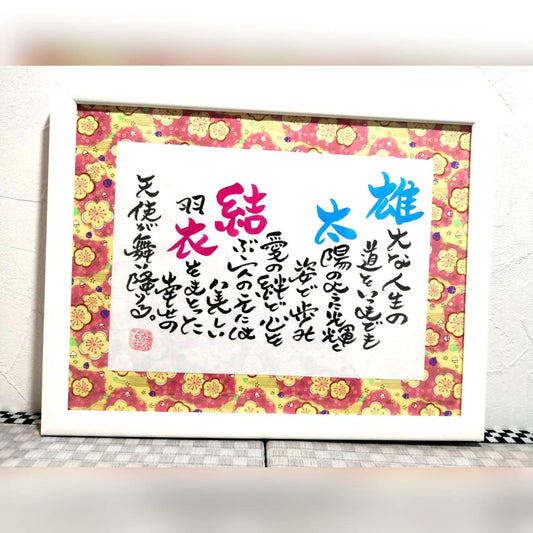 雄大な人生の
道をいつまでも
太陽の様な輝く
姿で歩み
愛の絆で心を
結ぶ二人の元には
美しい
羽衣をまとった
幸せの
天使が舞い降りる。